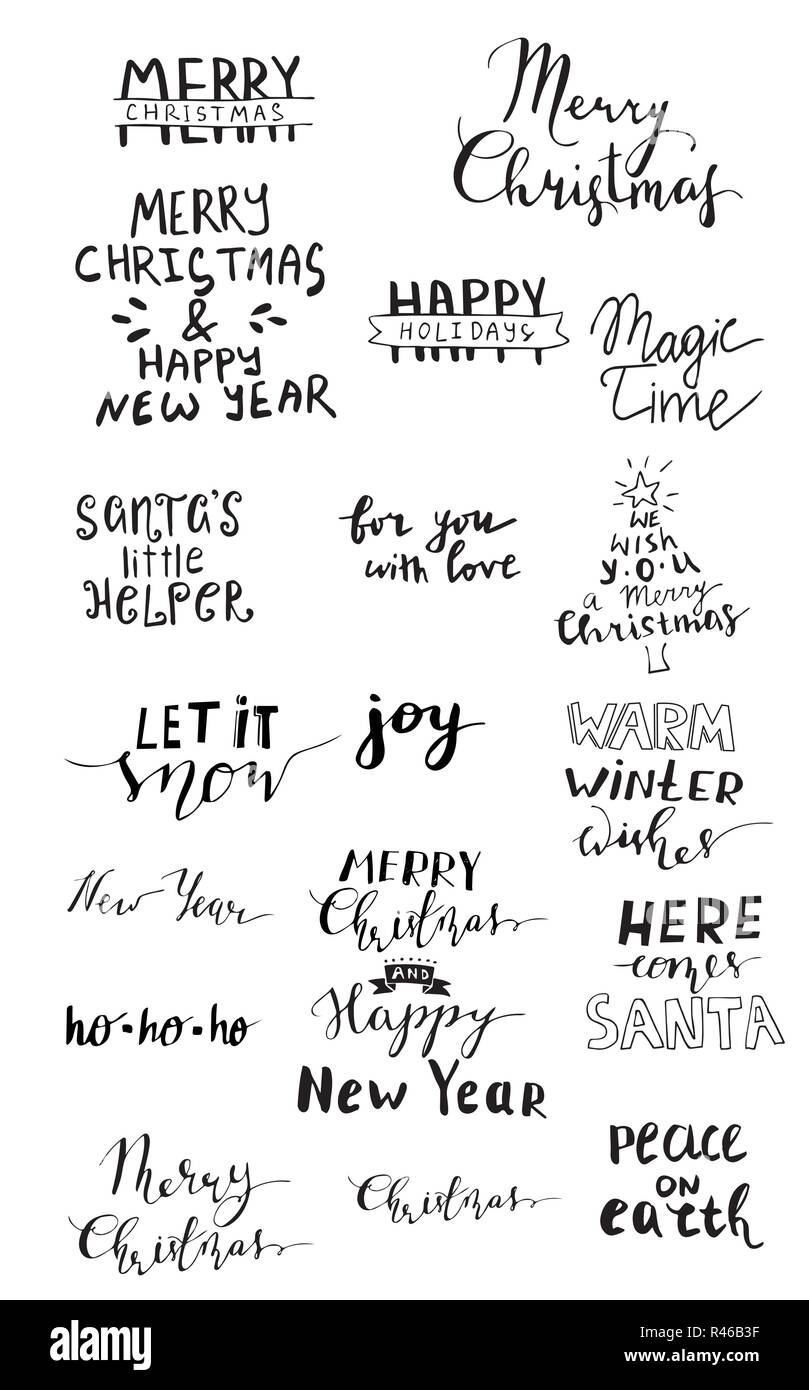 MERRY
CHRISTMAS
Merry
Christmas
MERRY
CHRISTMAS
&
HAPPY
NEW YEAR
HAPPY
HOLIDAYS
Magic
Time
SANTA'S
little
HELPER
for you
with love
WE
WISH
Y.O.U
a Merry
Christmas
LET iT
snow
joy
WARM
WINTER
wishes
New Year
MERRY
Christmas
AND
Happy
New Year
HERE
comes
SANTA
ho-ho-ho
Merry
Christmas
Christmas
Peace
ON
earth
alamy
Image ID: R46B3F
www.alamy.com